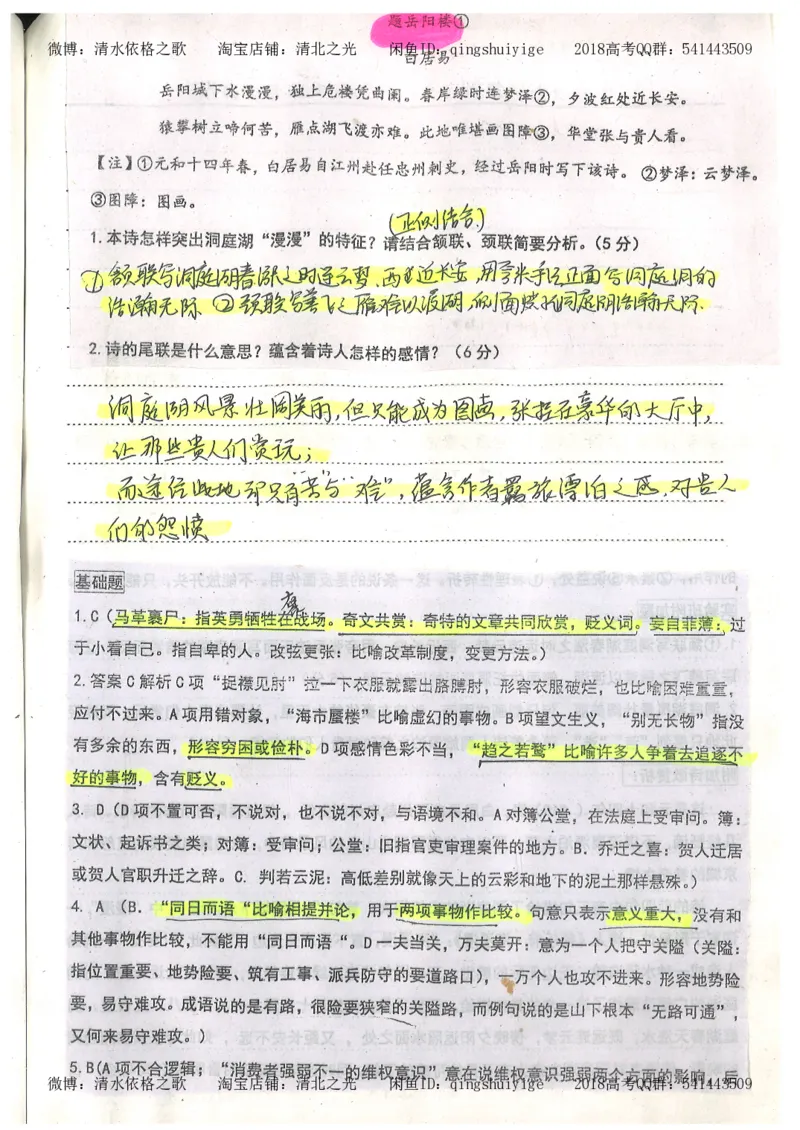 题岳阳楼①
微博：清水依格之歌 淘宝店铺：清北之光 闲鱼ID：qingshuiyige 2018高考QQ群：541443509
白居易
岳阳城下水漫漫，独上危楼凭曲阑。春岸绿时连梦泽②，夕波红处近长安。
猿攀树立啼何苦，雁点湖飞渡亦难。此地唯堪画图障③，华堂张与贵人看。
【注】①元和十四年春，白居易自江州赴任忠州刺史，经过岳阳时写下该诗。②梦泽：云梦泽。
③图障：图画。
(正侧结合)
1.本诗怎样突出洞庭湖“漫漫”的特征？请结合颔联、颈联简要分析。（5分）
①颔联写洞庭湖春涨之时连云梦、西近长安，用夸张手法正面写洞庭湖的
浩瀚无际 ②颈联写善飞之雁难以渡湖，侧面烘托洞庭湖浩瀚无际.
2.诗的尾联是什么意思？蕴含着诗人怎样的感情？（6分）
洞庭湖风景壮阔美丽，但只能成为图画，张挂在豪华的大厅中，
让那些贵人们赏玩；
而途经此地却只有“苦”与“难”，蕴含作者羁旅漂泊之感，对贵人
们的怨愤
基础题
1.C（马革裹尸：指英勇牺牲在战场。奇文共赏：奇特的文章共同欣赏，贬义词。妄自菲薄：过
于小看自己。指自卑的人。改弦更张：比喻改革制度，变更方法。）
2.答案C 解析C项“捉襟见肘”拉一下衣服就露出胳膊肘，形容衣服破烂，也比喻困难重重，
应付不过来。A项用错对象，“海市蜃楼”比喻虚幻的事物。B项望文生义，“别无长物”指没
有多余的东西，形容穷困或俭朴。D项感情色彩不当，“趋之若鹜”比喻许多人争着去追逐不
好的事物，含有贬义。
3. D（D项不置可否，不说对，也不说不对，与语境不和。A对簿公堂，在法庭上受审问。簿：
文状、起诉书之类；对簿：受审问；公堂：旧指官吏审理案件的地方。B. 乔迁之喜：贺人迁居
或贺人官职升迁之辞。C. 判若云泥：高低差别就像天上的云彩和地下的泥土那样悬殊。）
4. A （B. “同日而语“比喻相提并论，用于两项事物作比较。句意只表示意义重大，没有和
其他事物作比较，不能用“同日而语“。D一夫当关，万夫莫开：意为一个人把守关隘（关隘：
指位置重要、地势险要、筑有工事、派兵防守的要道路口），一万个人也攻不进来。形容地势险
要，易守难攻。成语说的是有路，很险要狭窄的关隘路，而例句说的是山下根本“无路可通”，
又何来易守难攻。）
5.B(A项不合逻辑；“消费者强弱不一的维权意识”意在说维权意识强弱两个方面的影响，后
微博：清水依格之歌 淘宝店铺：清北之光 闲鱼ID：qingshuiyige 2018高考QQ群：541443509